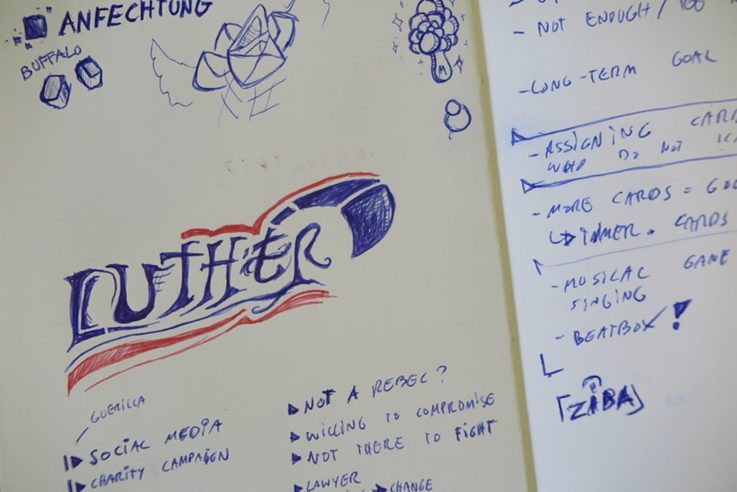 ANFECHTUNG
BUFFALO
LUTHER
GUERILLA
SOCIAL MEDIA
CHARITY CAMPAIGN
NOT A REBEL?
WILLING TO COMPROMISE
NOT THERE TO FIGHT
LAWYER
CHANGE
- NOT ENOUGH /
- LONG-TERM GOAL
- ASSIGNING CARD
WHO DO NOT
- MORE CARDS = GO
CARDS
- MUSICAL GAME
SINGING
- BEATBOX!
[ZIBA]